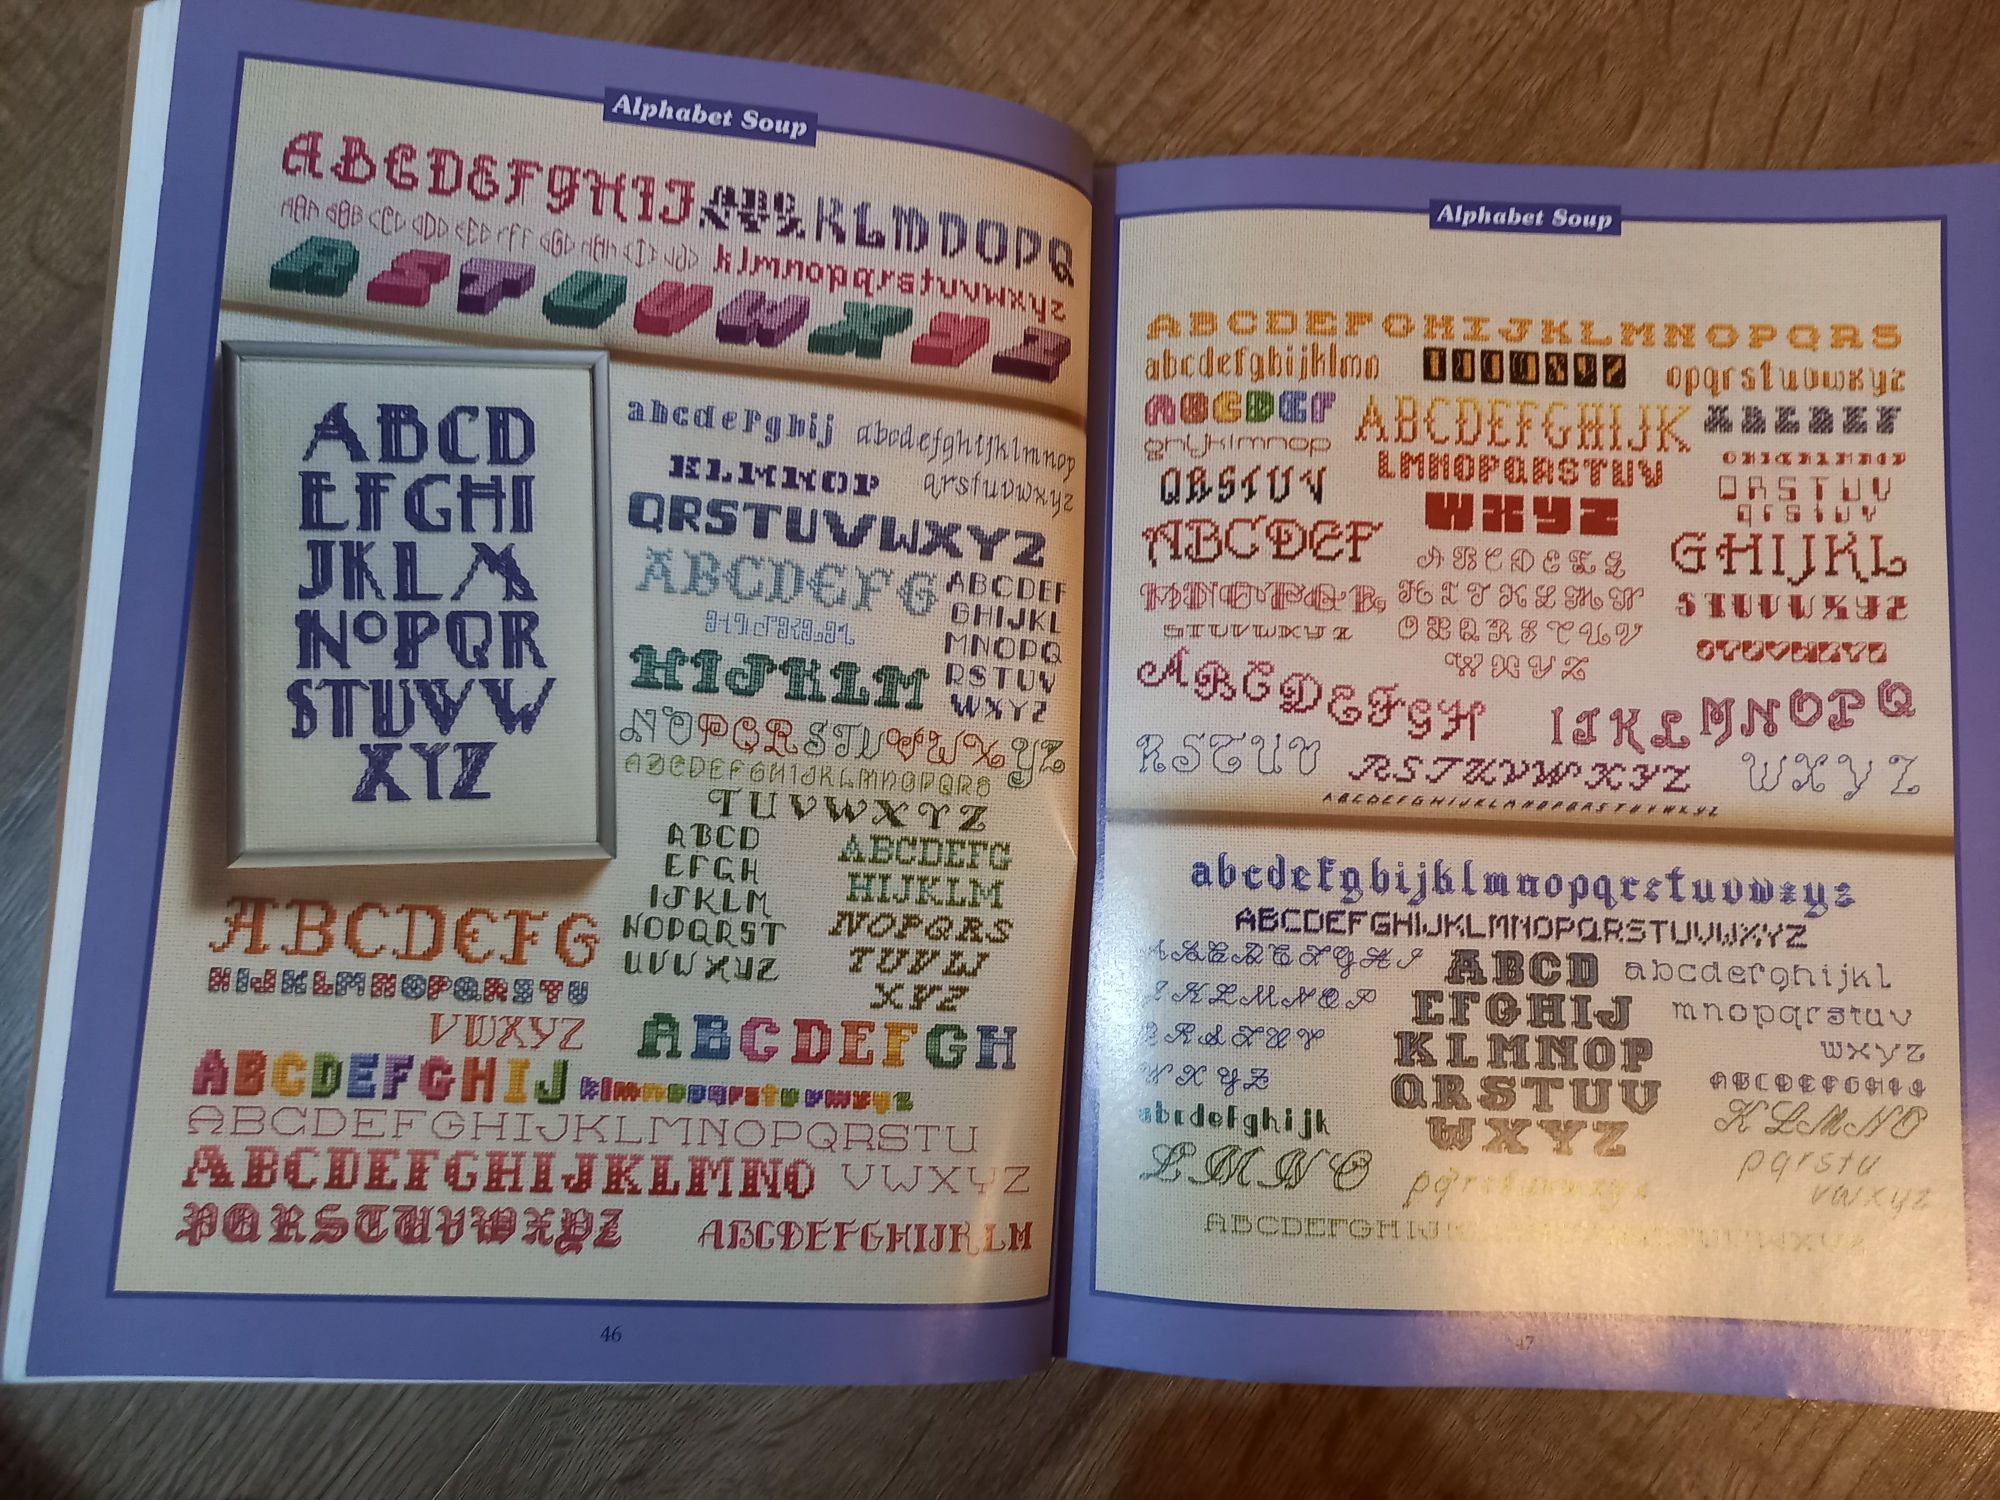 Alphabet Soup
ABCDEFGHIJ
KLMNOPQ
klmnopqrstuvwxyz
RSTUVWXYZ
ABCD
EFGHI
JKLM
NOPQR
STUVW
XYZ
abcdefghij
abcdefghijklmnop
KLMNOP
qrstuvwxyz
QRSTUVWXYZ
ABCDEFG
ABCDEF
GHIJKL
MNOPQ
RSTUV
WXYZ
HIJKLM
NOPQRSTUVWXYZ
ABCDEFGHIJKLMNOPQRS
TUVWXYZ
ABCD
EFGH
IJKLM
NOPQRST
UVWXYZ
ABCDEFG
HIJKLM
NOPQRS
TUVW
XYZ
ABCDEFG
HIJKLMNOPQRSTU
VWXYZ
ABCDEFGH
ABCDEFGHIJ
klmnopqrstuvwxyz
ABCDEFGHIJKLMNOPQRSTU
ABCDEFGHIJKLMNO
VWXYZ
PQRSTUVWXYZ
ABCDEFGHIJKLM
46
Alphabet Soup
ABCDEFGHIJKLMNOPQRS
abcdefghijklmn
TUVWXYZ
opqrstuvwxyz
ABCDEF
ABCDEFGHIJK
ABCDEF
ghijklmnop
LMNOPQRSTUV
QRSTUV
QRSTUV
WXYZ
ABCDEF
GHIJKL
ABCDEFG
HIJKLMN
STUVWXYZ
STUVWXYZ
OPQRSTUV
WXYZ
ABCDEFGH
IJKL
MNOPQ
RSTUV
RSTUVWXYZ
WXYZ
ABCDEFGHIJKLMNOPQRSTUVWXYZ
abcdefghijklmnopqrstuvwxyz
ABCDEFGHIJKLMNOPQRSTUVWXYZ
ABCD
EFGHIJ
KLMNOP
QRSTUV
WXYZ
abcdefghijkl
mnopqrstuv
wxyz
KLMNO
pqrstu
vwxyz
WXYZ
abcdefghijk
LMNO
47